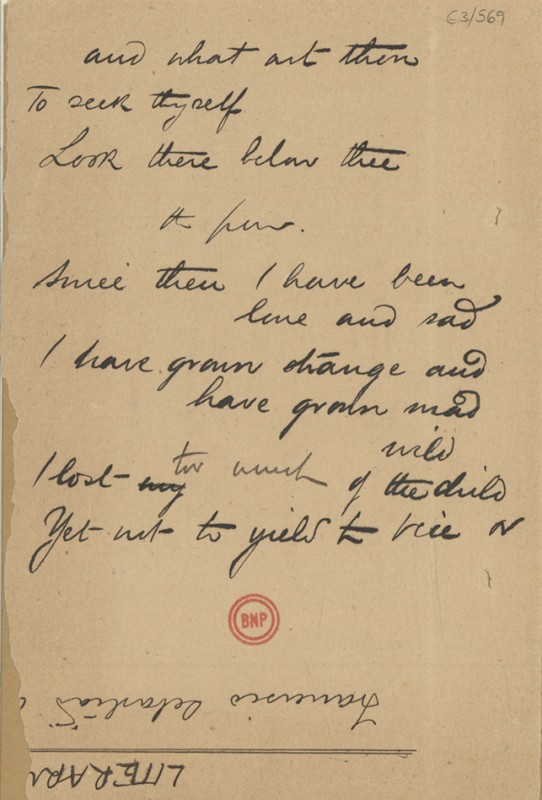 E3/569
and what art thou
To seek thyself
Look there below thee
Since then I have been
lone and sad
I have grown strange and
have grown mad
wild
I lost my too much of the child
Yet not to yield to Vice or
BNP
Francisco
LITERAR